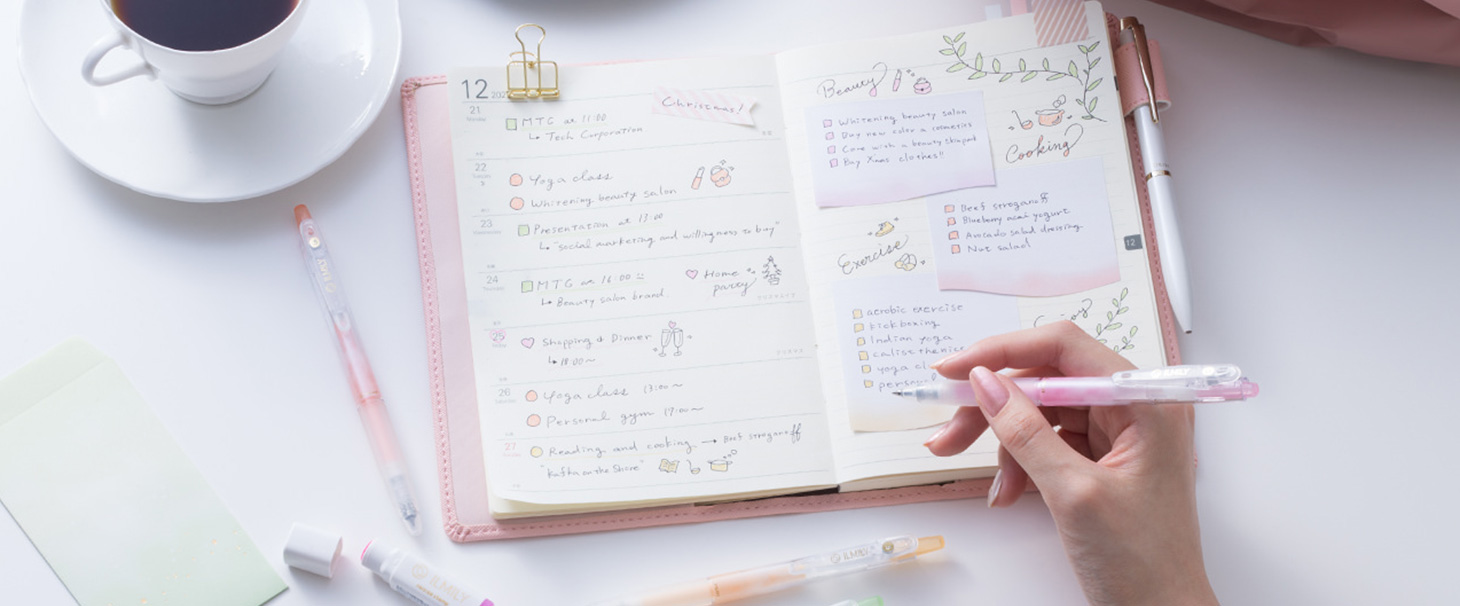 12
21
Monday
MTG at 11:00
Tech Corporation
Christmas!
22
Tuesday
Yoga class
Whitening beauty salon
23
Wednesday
Presentation at 13:00
"Social marketing and willingness to buy"
24
Thursday
MTG at 16:00
Beauty salon brand
Home
party
25
Shopping & Dinner
18:00~
26
Yoga class 13:00~
Personal gym 17:00~
27
Reading and cooking → Beef stroganoff
"Kafka on the Shore"
Beauty
Whitening beauty salon
Buy new color a cosmetics
Care with a beauty skin pack
Buy Xmas clothes!!
Cooking
Beef stroganoff
Blueberry acai yogurt
Avocado salad dressing
Nut salad
Exercise
aerobic exercise
kickboxing
Indian yoga
calisthenics
yoga cl
person
12
Enjoy
ILMILY
ILMILY